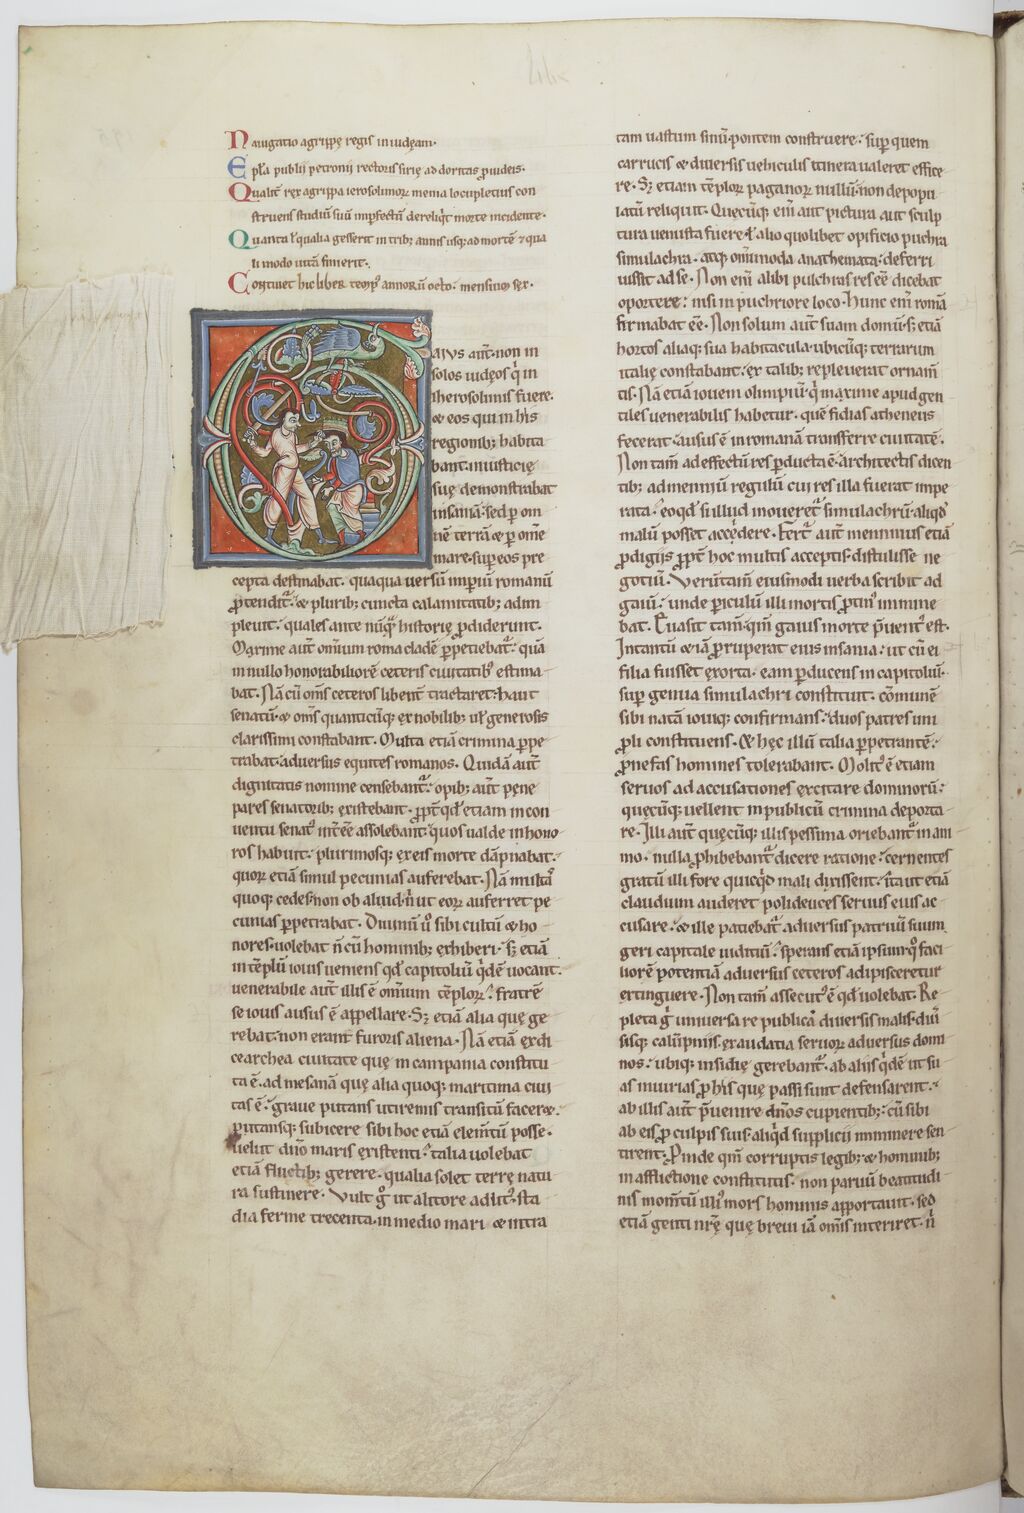 Nauigatio agrippę regis in iudęam.
Epl̃a publii petronii rectoris sirię ad doritas ꝓ iudeis.
Qualit̃ rex agrippa ierosolimoꝝ męnia locupletius con
struens studiũ suũ imꝑfectũ dereliq̃t morte incidente.
Quanta ł qualia gesserit in trib; annis usq; ad mortẽ ⁊ qua
li modo uitã finierit.
Continet hic liber temp⁹ annorũ octo. mensiuͫ sex.
Gaius aut̃ non in
solos iudęos q̇ in
iherosolimis fuere.
& eos qui in his
regionib; habita
bant. iniusticię
suę demonstrabat
insaniã. sed ꝑ om
nẽ terrã & ꝑ om̃e
mare. sup eos pre
cepta destinabat. quaqua uersũ imꝑiũ romanũ
ꝓtenditᷓ. & plurib; cuncta calamitatib; adim
pleuit. quales ante nũq̃ historię ꝓdiderunt.
Maxime aut̃ omnium roma cladẽ ꝑpetiebatᷓ. quã
in nullo honorabiliorẽ ceteris ciuitatib⁹ estima
bat. Nã cũ om̃s ceteros libent̃ tractaret. haut
senatũ. & om̃s quanticũq; ex nobilib; ul̃ generosis
clarissimi constabant. Multa etiã crimina ꝑpe
trabat. aduersus equites romanos. Quidã aut̃
dignitatis nomine censebantᷓ. opib; aut̃ pęne
pares senatorib; existebant. ꝓpt̃ qd̃ etiam in con
uentu senat⁹ int̃eẽ assolebant. quos ualde in hono
ros habuit. plurimosq; ex eis morte dãpnabat.
quoꝝ etiã simul pecunias auferebat. Nã
quoq; cędes. non ob aliud. ñ ut eoꝝ auferret pe
cunias ꝑpetrabat. Diuinũ ů sibi cultũ & ho
nores. uolebat ñ cũ hominib; exhiberi. sꝫ etiã
in tẽplũ iouis ueniens qd̃ capitoliũ q̇dẽ uocant.
uenerabile aut̃ illis ẽ om̃ium tẽploꝝ. fratrẽ
se iouis ausus ẽ appellare. Sꝫ etiã alia quę ge
rebat. non erant furoris aliena. Nã etiã ex di
cearchea ciuitate quę in campania constitu
ta ẽ. ad mesanã quę alia quoq; maritima ciui
tas ẽ. graue putans si triremis transitũ facere.
putansq; subicere sibi hoc etiã elem̃tũ posse.
uelut dño maris existenti. talia uolebat
etiã fluctib; gerere. qualia solet terrę natu
ra sustinere. Vult g̊ ut a litore ad lit⁹. sta
dia ferme trecenta. in medio mari & intra
tam uastum sinũ. pontem construere. sup quem
carrucis & diuersis uehiculis itinera ualeret effice
re. Sꝫ etiam tẽploꝝ paganoꝝ nullũ. non depopu
latũ reliquit. Quęcũq; em̃ aut pictura aut sculp
tura uenusta fuere ł alio quolibet opificio pulchra
simulachra. atq; om̃imoda anathemata. deferri
iussit ad se. Non em̃ alibi pulchras res eẽ dicebat
oportere. nisi in pulchriore loco. Hunc em̃ romã
firmabat eẽ. Non solum aut̃ suam domũ. sꝫ etiã
hortos aliaq; sua habitacula. ubicũq; terrarum
italię constabant. ex talib; repleuerat ornam̃
tis. Nã etiã iouem olimpiũ. q̇ maxime apud gen
tiles uenerabilis habetur. quẽ fidias atheneus
fecerat. ausus ẽ in romanã transferre ciuitatẽ.
Non tam̃ ad effectũ res ꝑducta ẽ. architectis dicen
tib; ad menniũ regulũ cui res illa fuerat impe
rata. eo qd̃ si illud moueretᷓ simulachrũ. aliqd̃
malũ posset accędere. Fertᷓ aut̃ memmius etiã
ꝓdigiis ꝓpt̃ hoc multis acceptis. distulisse ne
gotiũ. Verũtam̃ eiusmodi uerba scribit ad
gaiũ. unde ꝑiculũ illi mortis ꝓtin⁹ immine
bat. Euasit tam̃. qm̃ gaius morte p̃uent⁹ est.
Intantũ & iã ꝓruperat eius insania. ut cũ ei
filia fuisset exorta. eam ꝑducens in capitoliũ.
sup genua simulachri constituit. cõmunẽ
sibi natã iouiq; confirmans. duos patres uni
ꝓli constituens. & hęc illũ talia ꝑpetrantẽ.
ꝓ nefas homines tolerabant. Molit⁹ ẽ etiam
seruos ad accusationes excitare dominorũ.
quęcũq; uellent in publicũ crimina deporta
re. Illi aut̃ quęcũq; illis pessima oriebantᷓ in ani
mo. nulla ꝓhibebantᷓ dicere ratione. cernentes
gratũ illi fore quicq̃d mali dixissent. ita ut etiã
claudium auderet polideuces seruus eius ac
cusare. & ille patiebatᷓ aduersus patruũ suum
geri capitale iuditiũ. sperans etiã ipsum faci
liorẽ potentiã aduersus ceteros adipisceretur
extinguere. Non tam̃ assecut⁹ ẽ qd̃ uolebat. Re
pleta g̊ uniuersa re publica diuersis malis. diui
sisq; calũpniis. exaudatia seruoꝝ aduersus domi
nos. ubiq; insidię gerebantᷓ. ab aliis qdẽ ut su
as iniurias ꝓ his quę passi sunt defensarent.
ab illis aut̃ p̃uenire dños cupientib;. cũ sibi
ab eis ꝓ culpis suis. aliq̃d supplicii imminere sen
tirent. Proinde qm̃ corruptis legib; & hominib;
in afflictione constitutis. non paruũ beatitudi
nis mom̃tũ illi⁹ mors hominis apportauit. sed
etiã genti nr̃ę quę breui iã om̃is interiret. ñ